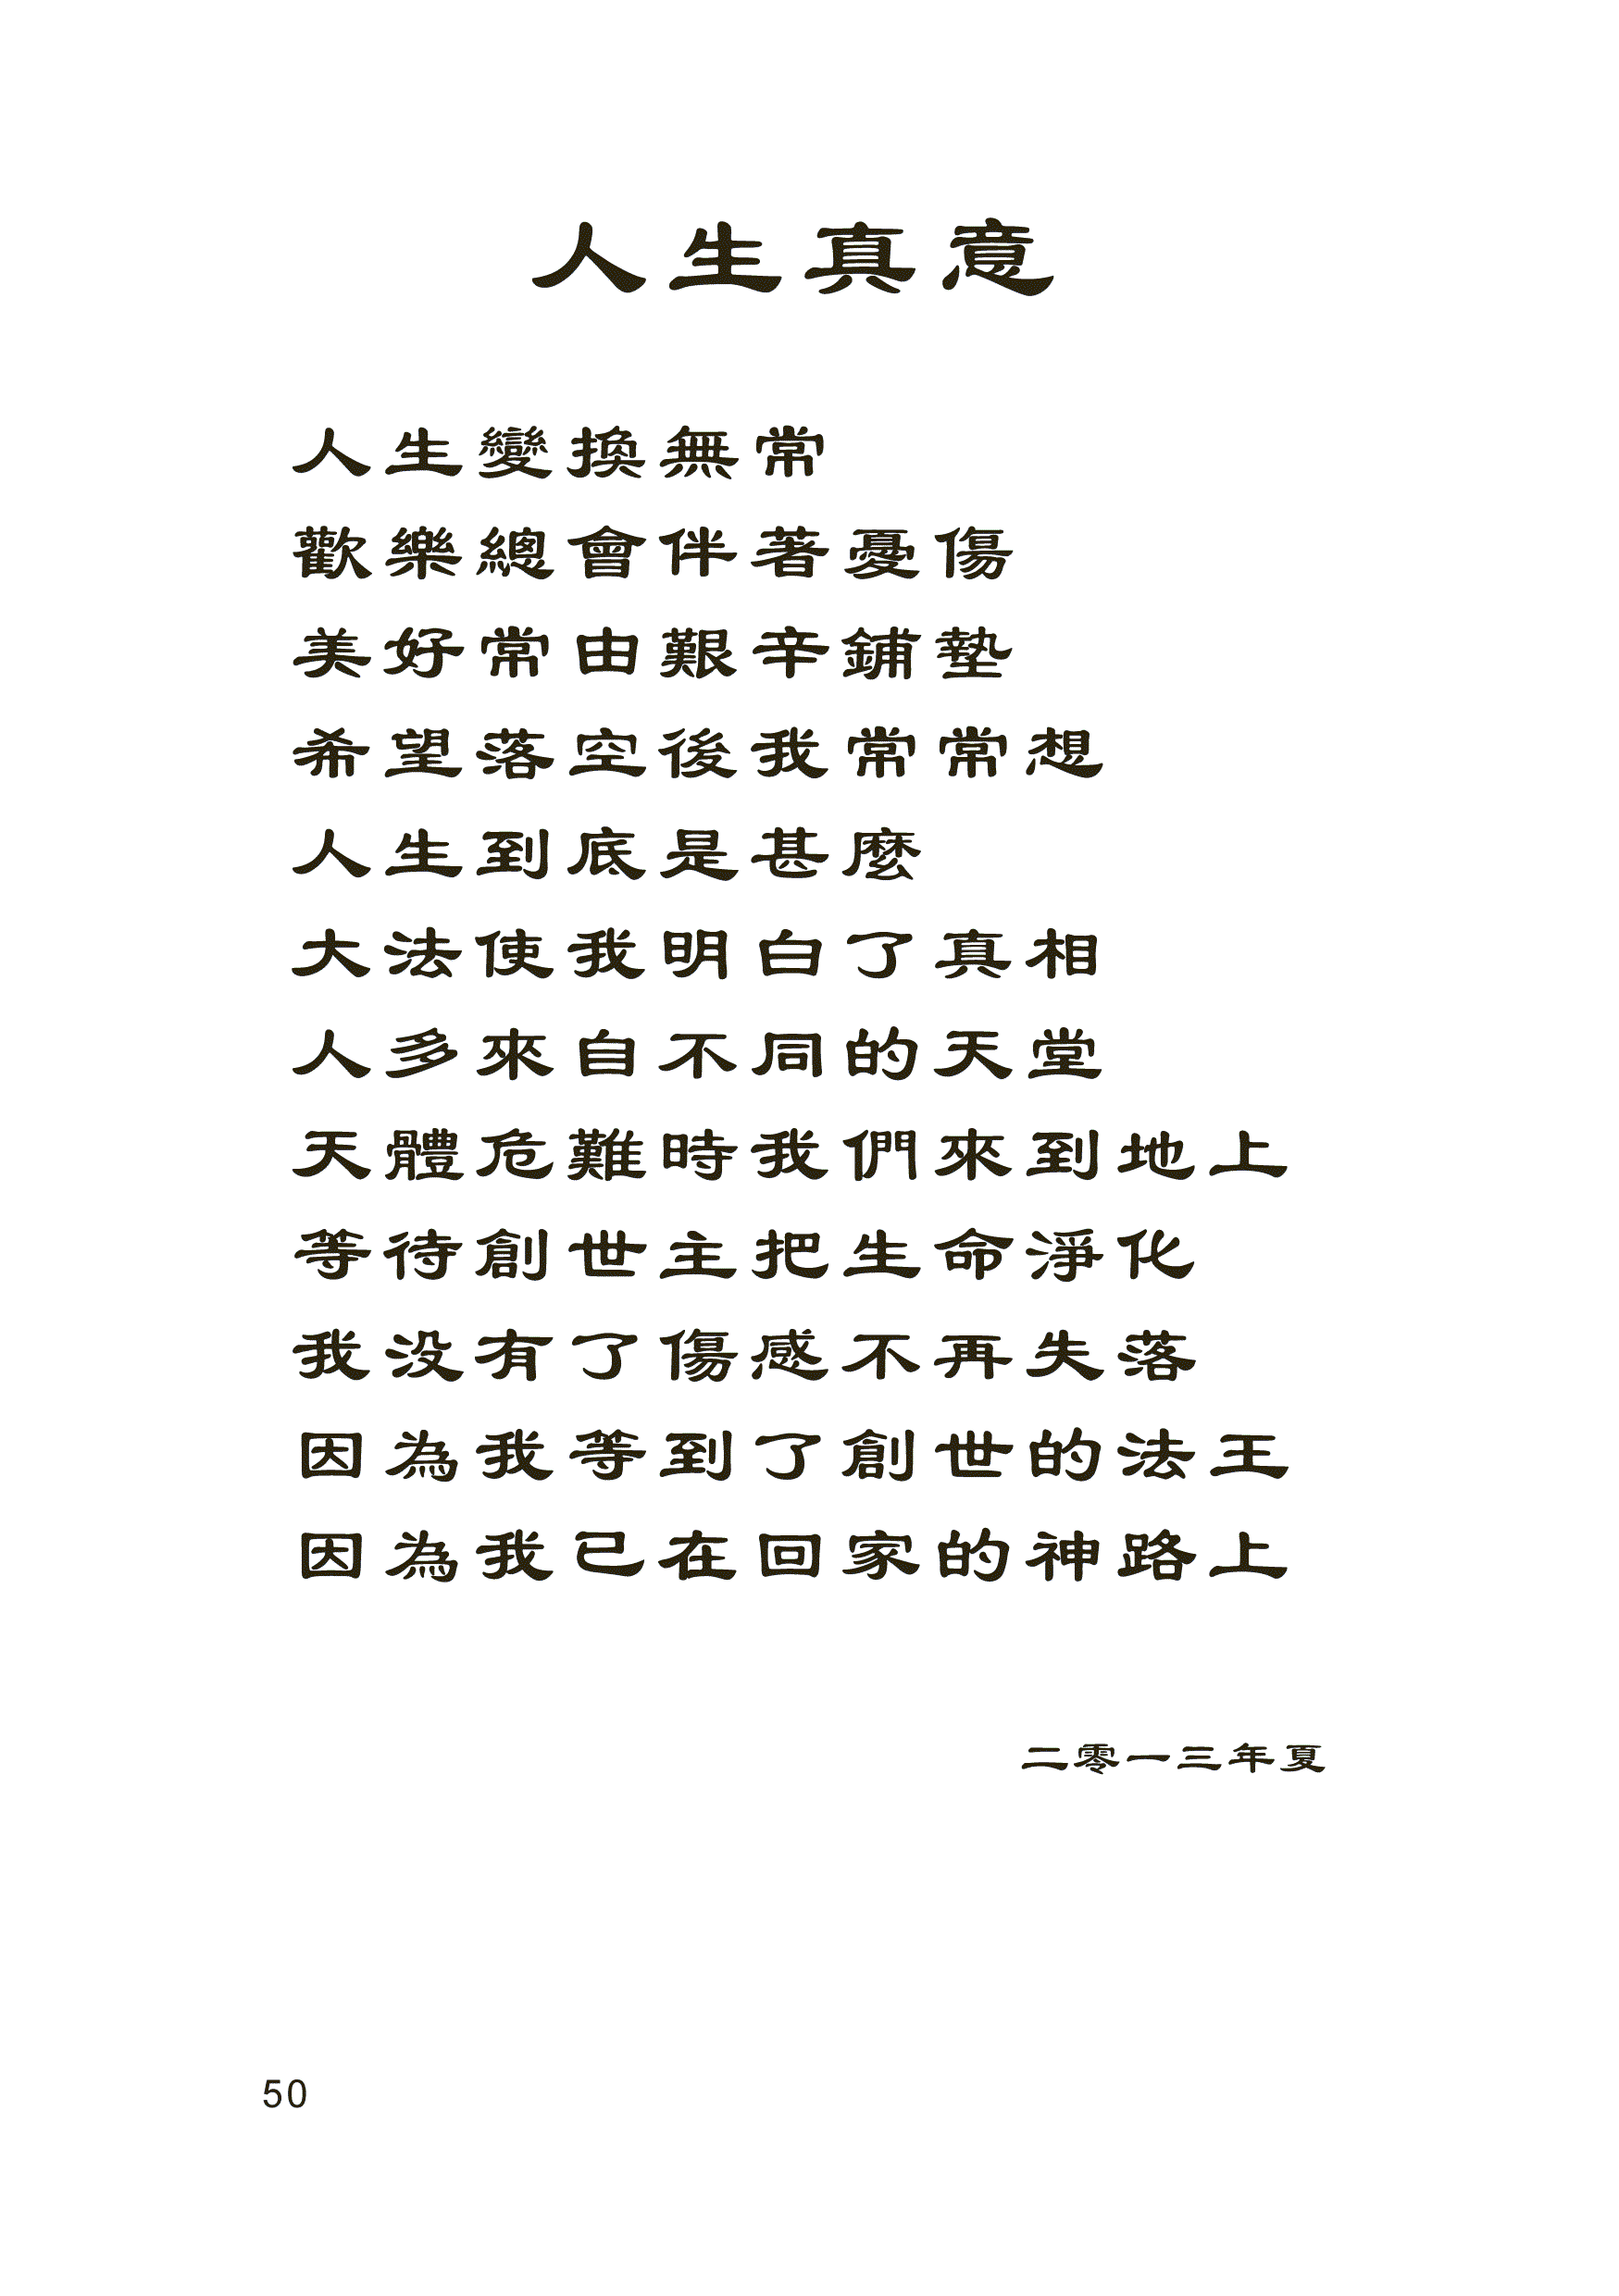 人生真意
人生變換無常
歡樂總會伴著憂傷
美好常由艱辛鋪墊
希望落空後我常常想
人生到底是甚麼
大法使我明白了真相
人多來自不同的天堂
天體危難時我們來到地上
等待創世主把生命淨化
我没有了傷感不再失落
因為我等到了創世的法王
因為我已在回家的神路上
二零一三年夏
50